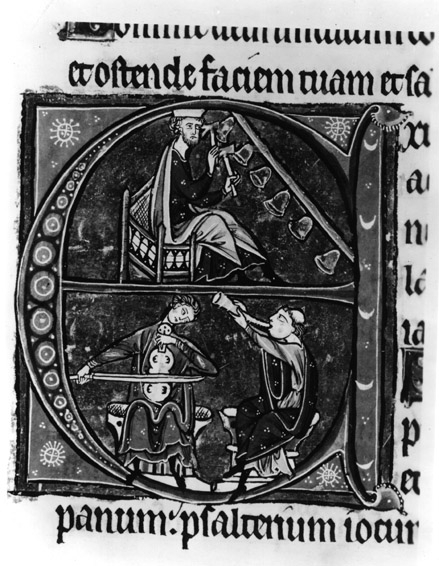 et ostende faciem tuam et sa
E
a
n
la
ia
p
et
panum: psalterium iocun